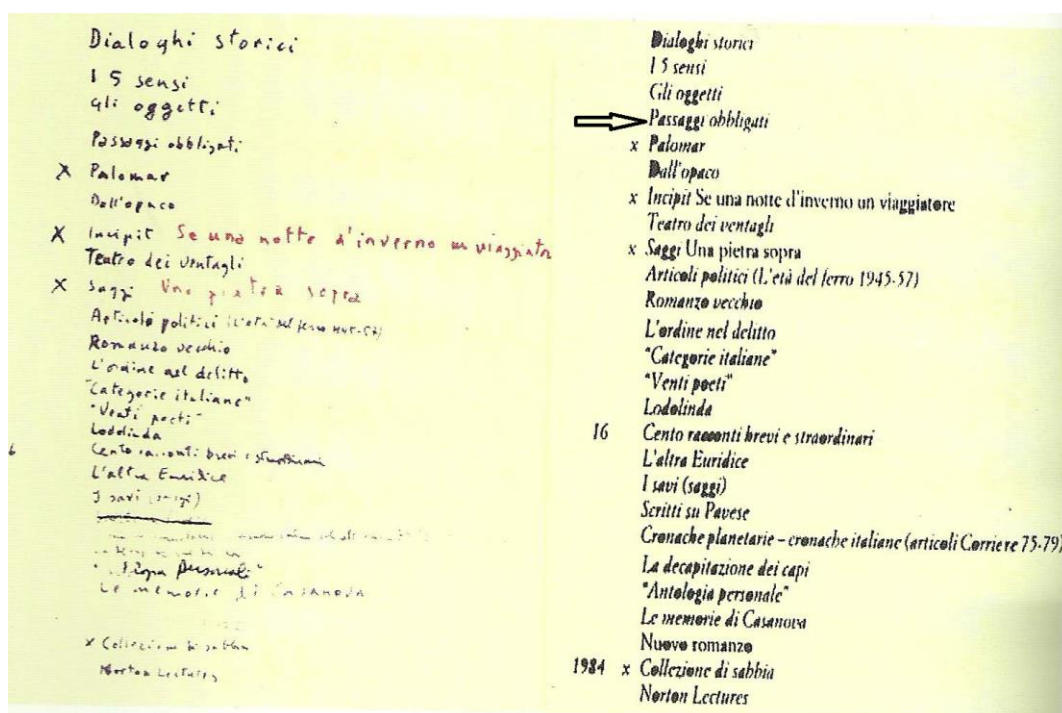 Dialoghi storici
I 5 sensi
Gli oggetti
Passaggi obbligati
x Palomar
Dall'opaco
x Incipit Se una notte d'inverno un viaggiator
Teatro dei ventagli
x Saggi Una pietra sopra
Articoli politici (L'età del ferro 1945-57)
Romanzo vecchio
L'ordine nel delitto
"Categorie italiane"
"Venti poeti"
Lodolinda
6 Cento racconti brevi e straordinari
L'altra Euridice
I savi (saggi)
personale"
Le memorie di Casanova
x Collezione di sabbia
Norton Lectures
Dialoghi storici
I 5 sensi
Gli oggetti
Passaggi obbligati
x Palomar
Dall'opaco
x Incipit Se una notte d'inverno un viaggiatore
Teatro dei ventagli
x Saggi Una pietra sopra
Articoli politici (L'età del ferro 1945-57)
Romanzo vecchio
L'ordine nel delitto
"Categorie italiane"
"Venti poeti"
Lodolinda
16 Cento racconti brevi e straordinari
L'altra Euridice
I savi (saggi)
Scritti su Pavese
Cronache planetarie – cronache italiane (articoli Corriere 75-79)
La decapitazione dei capi
"Antologia personale"
Le memorie di Casanova
Nuovo romanzo
1984 x Collezione di sabbia
Norton Lectures